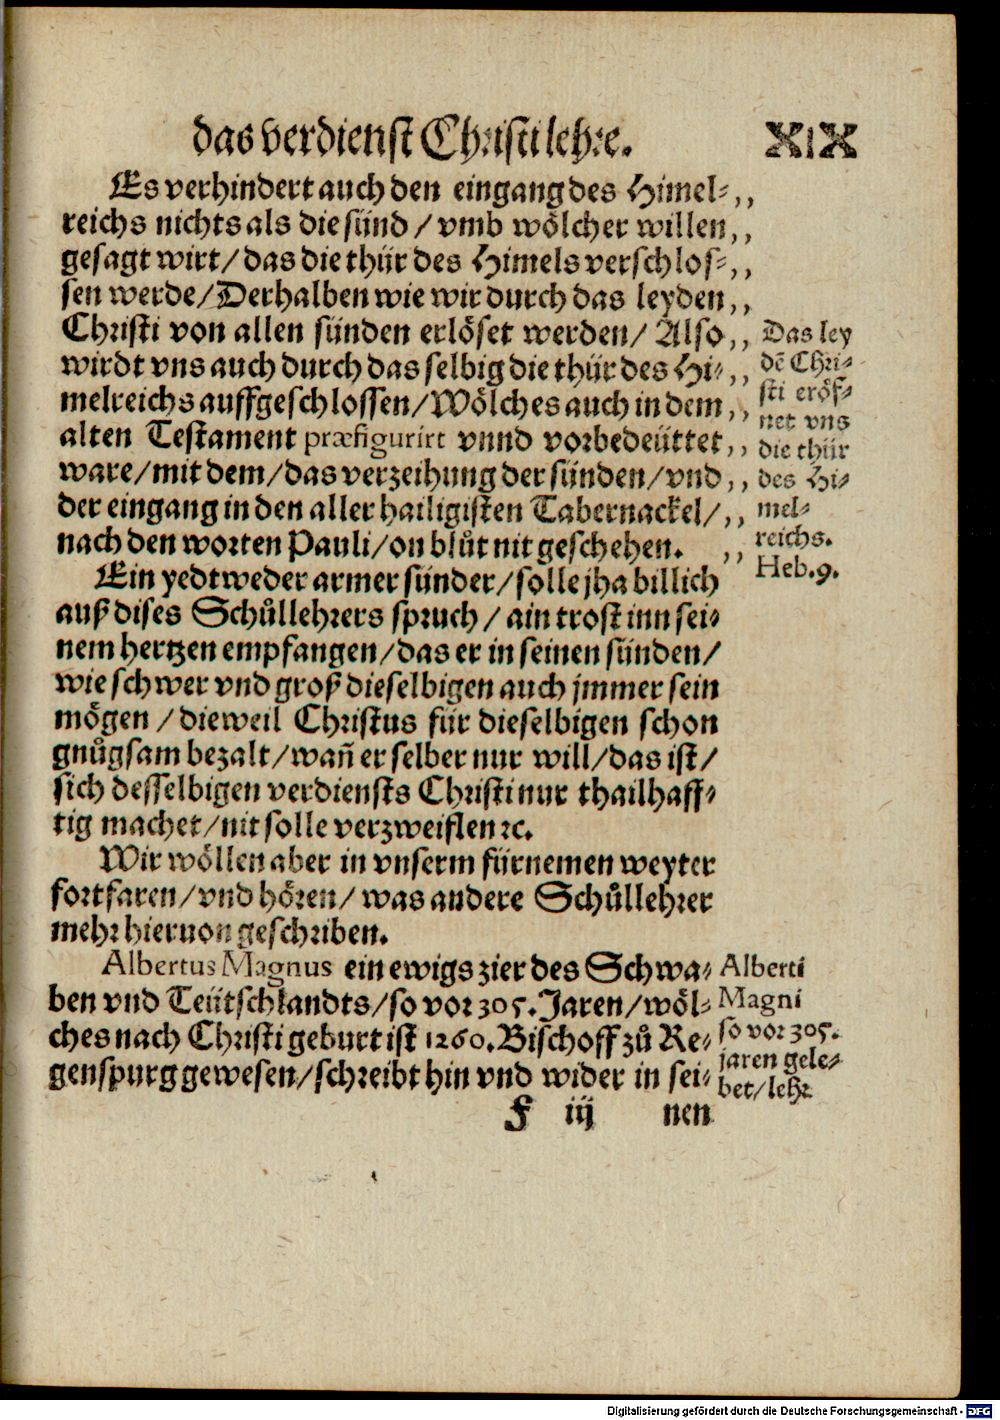 das verdienst Christi lehre. XIX
Es verhindert auch den eingang des Himel-,,
reichs nichts als die sünd / vmb wölcher willen,,
gesagt wirt / das die thür des Himels verschlos-,,
sen werde / Derhalben wie wir durch das leyden,,
Christi von allen sünden erlöset werden / Also,,
wirdt vns auch durch das selbig die thür des Hi-,,
melreichs auffgeschlossen / Wölches auch in dem,,
alten Testament præfigurirt vnnd vorbedeüttet,,
ware / mit dem / das verzeihung der sünden / vnd,,
der eingang in den aller hailigisten Tabernackel /,,
nach den worten Pauli / on blůt nit geschehen. ,,
Das ley
dē Chri-
sti eröf-
net vns
die thür
des Hi-
mel-
reichs.
Heb.9.
Ein yedtweder armer sünder / solle jha billich
auß dises Schůllehrers spruch / ain trost inn sei-
nem hertzen empfangen / das er in seinen sünden /
wie schwer vnd groß dieselbigen auch jmmer sein
mögen / dieweil Christus für dieselbigen schon
gnůgsam bezalt / wañ er selber nur will / das ist /
sich desselbigen verdiensts Christi nur thailhaff-
tig machet / nit solle verzweiflen ꝛc.
Wir wöllen aber in vnserm fürnemen weyter
fortfaren / vnd hören / was andere Schůllehrer
mehr hieruon geschriben.
Albertus Magnus ein ewigs zier des Schwa-
ben vnd Teütschlandts / so vor 305. Jaren / wöl-
ches nach Christi geburt ist 1260. Bischoff zů Re-
genspurg gewesen / schreibt hin vnd wider in sei-
Alberti
Magni
so vor 305.
jaren gele-
bet / lehr
F iij nen
Digitalisierung gefördert durch die Deutsche Forschungsgemeinschaft - DFG